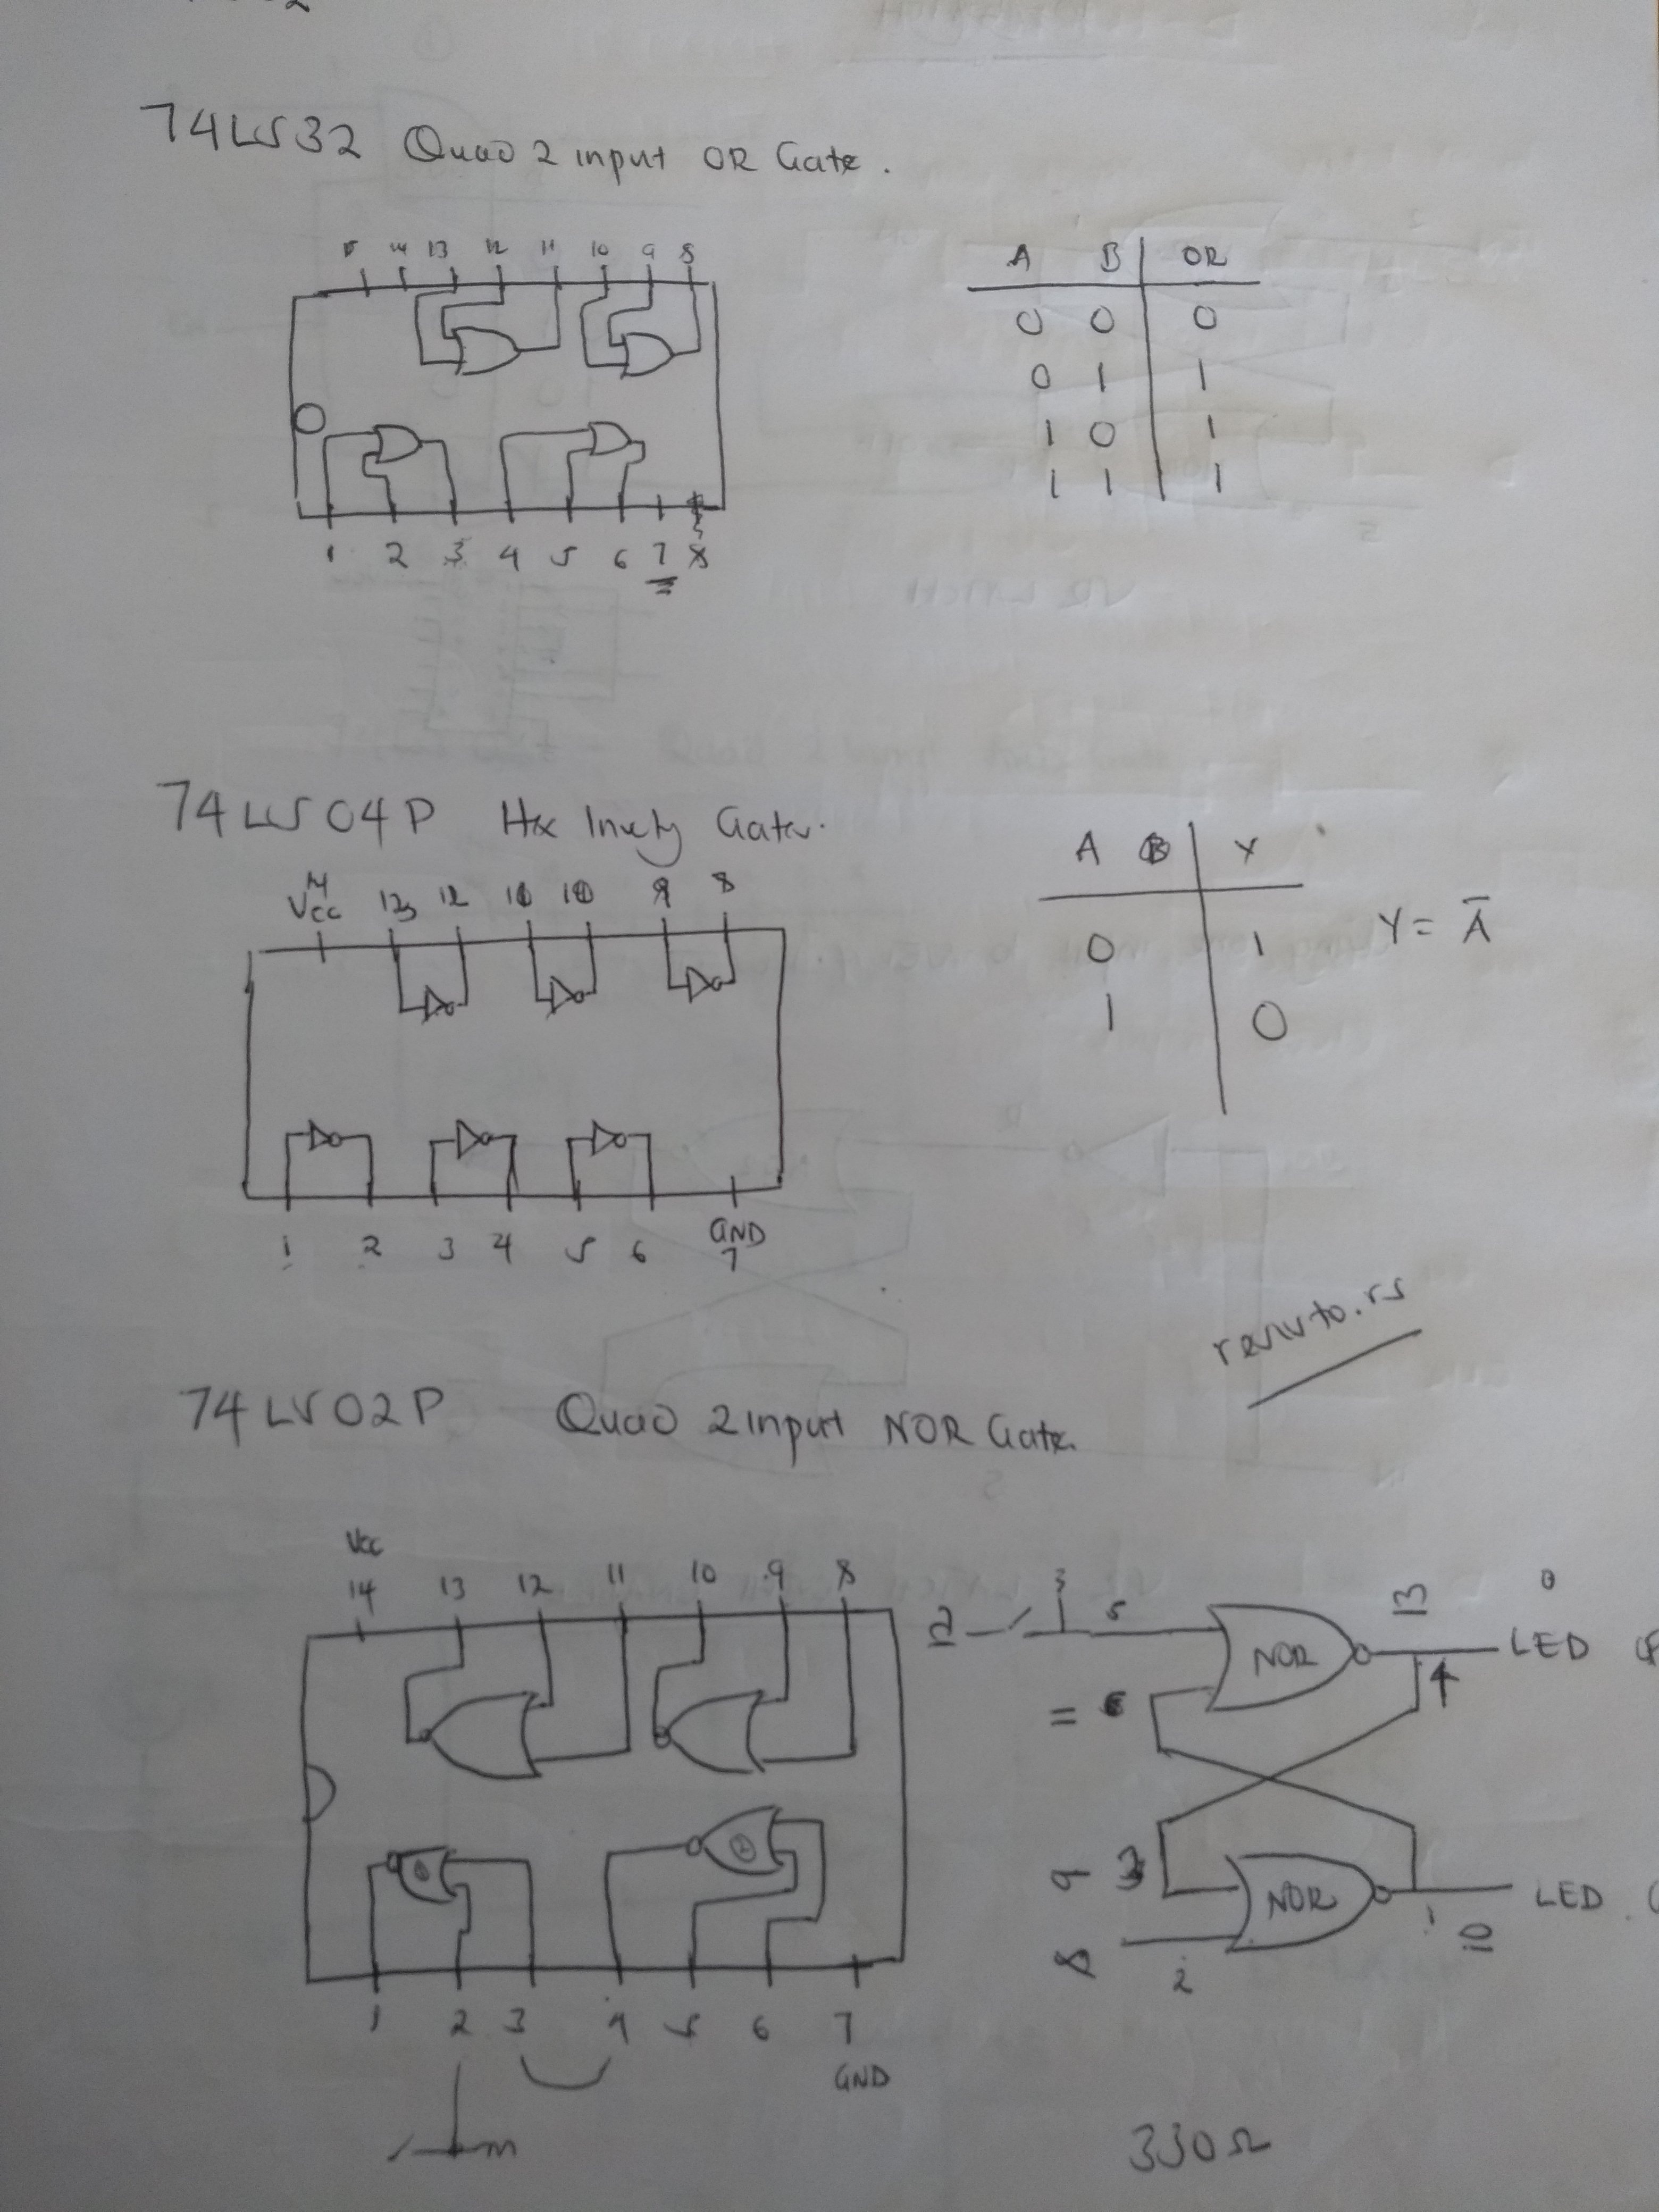 74LS32 Quad 2 input OR Gate.
14 13 12 11 10 9 8
1 2 3 4 5 6 7 8
A B OR
0 0 0
0 1 1
1 0 1
1 1 1
74LS04P Hex Gates.
14
Vcc 13 12 11 10 9 8
1 2 3 4 5 6 GND
7
A B Y
0 1
1 0
Y = A̅
74LS02P Quad 2 input NOR Gate.
Vcc
14 13 12 11 10 9 8
1 2 3 4 5 6 7
GND
3 5 NOR 13 LED
= 6
9 3 NOR LED
8 2 1 10
330Ω